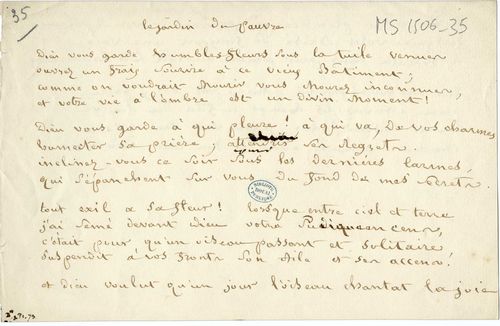 35
le jardin du pauvre
MS 1506-35
Dieu vous garde humbles fleurs sous la tuile venues
ouvrez un frais sourire à ce vieux Bâtiment;
comme on voudrait mourir vous mourez inconnues,
et votre vie à l'ombre est un divin moment!
Dieu vous garde à qui pleure! à qui va, de vos charmes
humecter sa prière, attendris ses regrets.
inclinez-vous ce soir sous les dernières larmes,
qui s'épanchent sur vous du fond de mes secrets.
tout exil a sa fleur! lorsque entre ciel et terre
j'ai semé devant Dieu votre Pudique encens,
c'était pour qu'un oiseau passant et solitaire
suspendit à vos fronts son aile et ses accens!
et dieu voulut qu'un jour l'oiseau chantat la joie